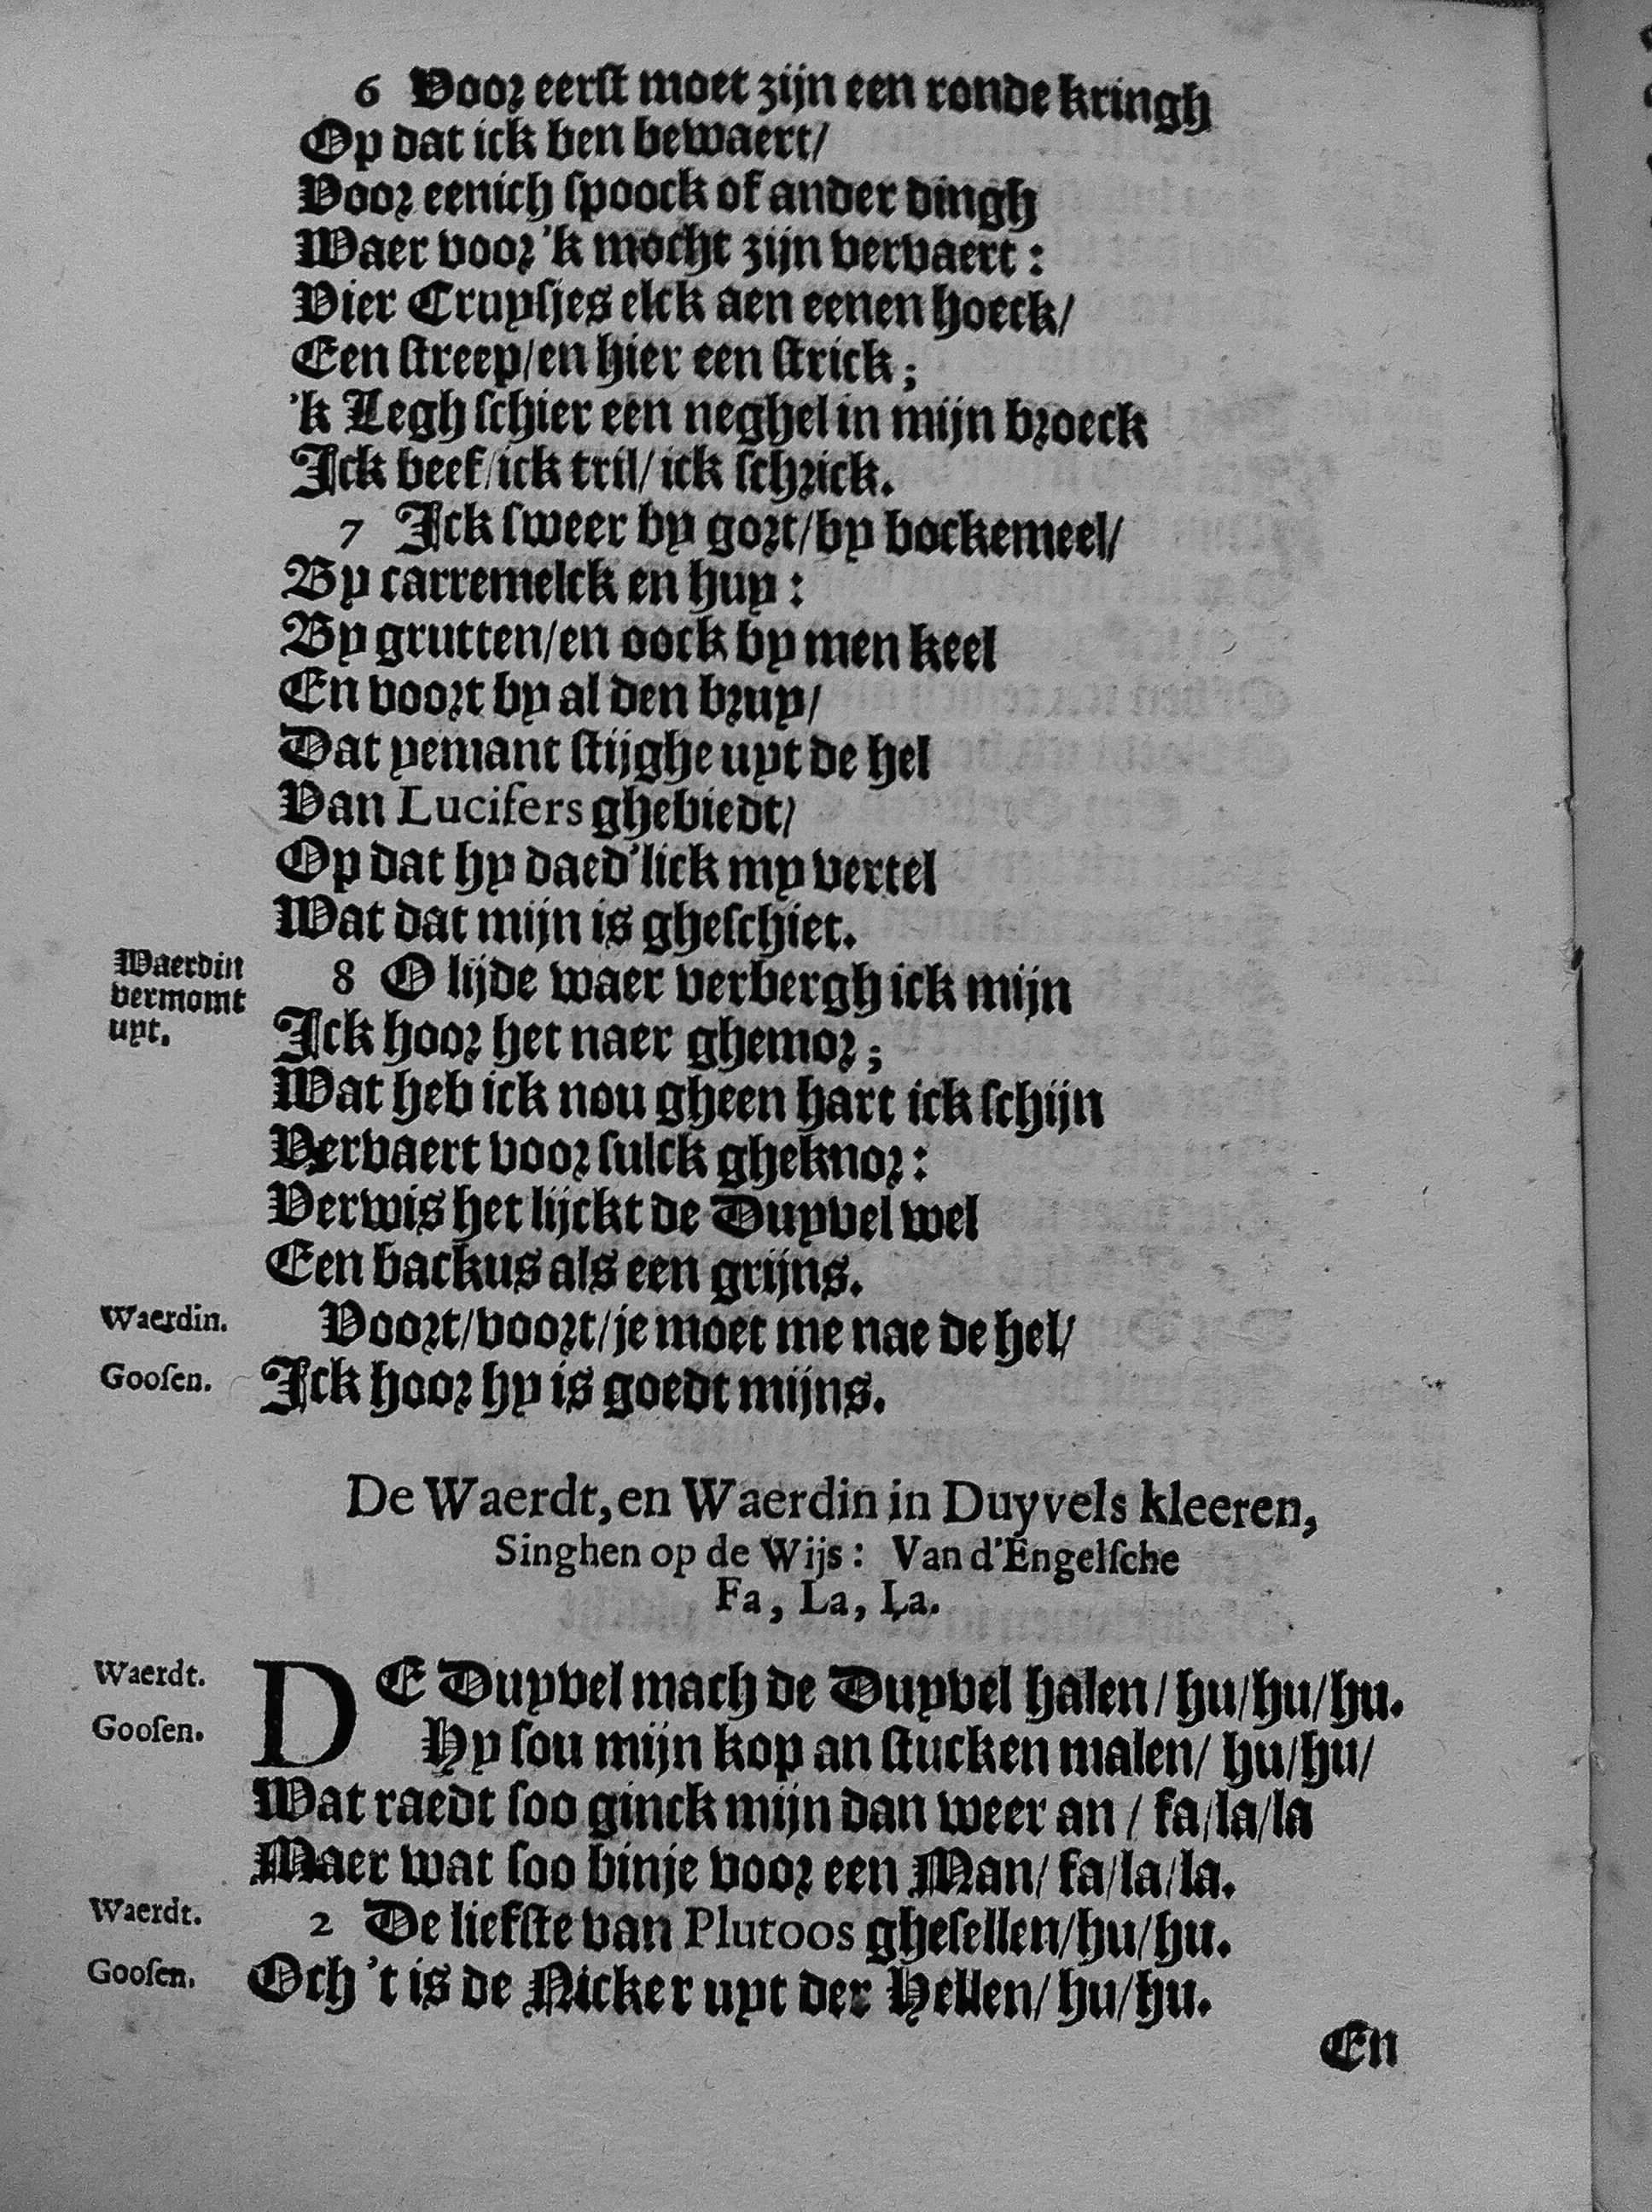 6 Voor eerſt moet zijn een ronde kringh
Op dat ick ben bewaert/
Voor eenich ſpoock of ander dingh
Waer voor 'k mocht zijn vervaert :
Vier Cruyſjes elck aen eenen hoeck/
Een ſtreep/en hier een ſtrick ;
'k Legh ſchier een neghel in mijn broeck
Ick beef/ick tril/ ick ſchrick.
7 Ick ſweer by gort/by bockemeel/
By carremelck en huy :
By grutten/en oock by men keel
En voort by al den bruy/
Dat yemant ſtijghe uyt de hel
Van Lucifers ghebiedt/
Op dat hy daed'lick my vertel
Wat dat mijn is gheſchiet.
Waerdin
vermomt
uyt.
8 O lijde waer verbergh ick mijn
Ick hoor het naer ghemor ;
Wat heb ick nou gheen hart ick ſchijn
Vervaert voor ſulck gheknor :
Verwis het lijckt de Duyvel wel
Een backus als een grijns.
Waerdin. Voort/voort/je moet me nae de hel/
Gooſen. Ick hoor hy is goedt mijns.
De Waerdt, en Waerdin in Duyvels kleeren,
Singhen op de Wijs : Van d'Engelſche
Fa, La, La.
Waerdt. DE Duyvel mach de Duyvel halen/hu/hu/hu.
Gooſen. Hy ſou mijn kop an ſtucken malen/ hu/hu/
Wat raedt ſoo ginck mijn dan weer an / fa/la/la
Maer wat ſoo binje voor een Man/ fa/la/la.
Waerdt. 2 De liefſte van Plutoos gheſellen/hu/hu.
Gooſen. Och 't is de Nicker uyt der Hellen/hu/hu.
En